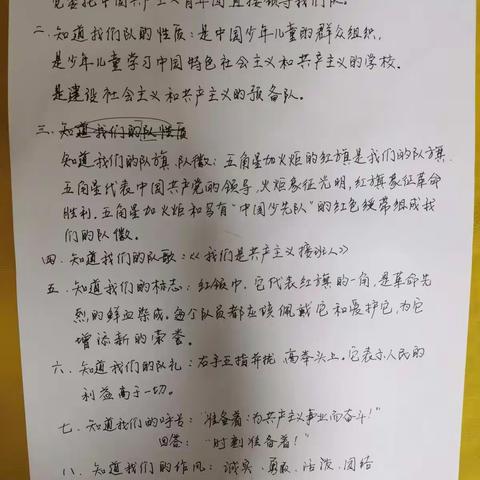 党委托中国共产主义青年团直接领导我们队。
二.知道我们队的性质:是中国少年儿童的群众组织,
是少年儿童学习中国特色社会主义和共产主义的学校.
是建设社会主义和共产主义的预备队.
三.知道我们的队性质
知道我们的队旗.队徽:五角星加火炬的红旗是我们的队旗.
五角星代表中国共产党的领导,火炬象征光明,红旗象征革命
胜利.五角星加火炬和写有"中国少先队"的红色绶带组成我
们的队徽。
四.知道我们的队歌:《我们是共产主义接班人》
五.知道我们的标志:红领巾.它代表红旗的一角,是革命先
烈的鲜血染成。每个队员都应该佩戴它和爱护它,为它
增添新的荣誉。
六.知道我们的队礼:右手五指并拢,高举头上。它表示人民的
利益高于一切。
七.知道我们的呼号:"准备着:为共产主义事业而奋斗!"
回答:"时刻准备着!"
八.知道我们的作风:诚实、勇敢、活泼、团结